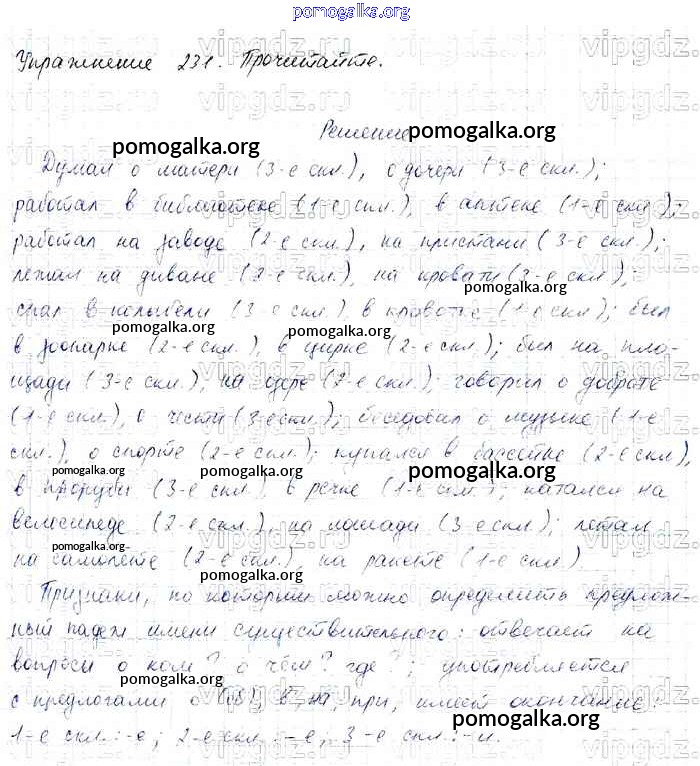 pomogalka.org
Упражнение 231. Прочитайте.
Решение pomogalka.org
pomogalka.org
Думал о матери (3-е скл.), о дочери (3-е скл.);
работал в библиотеке (1-е скл.), в аптеке (1-е скл.);
pomogalka.org pomogalka.org
работал на заводе (2-е скл.), на пристани (3-е скл.);
лежал на диване (2-е скл.), на кровати (3-е скл.);
спал в колыбели (3-е скл.), в кроватке (1-е скл.); был
pomogalka.org pomogalka.org
в зоопарке (2-е скл.), в цирке (2-е скл.); был на пло-
щади (3-е скл.), на озере (2-е скл.); говорил о доброте
(1-е скл.), о чести (3-е скл.); беседовал о музыке (1-е
скл.), о спорте (2-е скл.); купался в бассейне (2-е скл.),
pomogalka.org pomogalka.org pomogalka.org
в проруби (3-е скл.), в речке (1-е скл.); катался на
велосипеде (2-е скл.), на лошади (3-е скл.); летал
pomogalka.org
на самолете (2-е скл.), на ракете (1-е скл.)
pomogalka.org
Признаки, по которым можно определить предлож-
ный падеж имени существительного: отвечает на
вопросы о ком? о чём? где?; употребляется
pomogalka.org pomogalka.org
с предлогами о (об), в, на, при, имеет окончание:
pomogalka.org
1-е скл.: -е; 2-е скл.: -е; 3-е скл.: -и.
vipgdz.ru